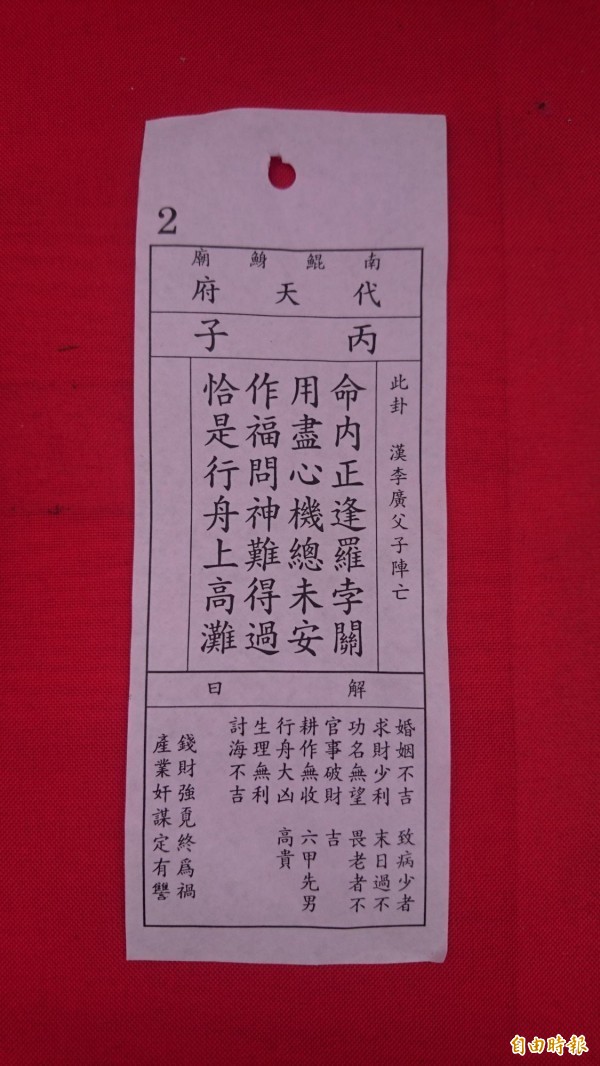 2
南鯤鯓廟
代天府
丙子
此卦 漢李廣父子陣亡
命內正逢羅孛關
用盡心機總未安
作福問神難得過
恰是行舟上高灘
解曰
婚姻不吉 致病少者
求財少利 末日過不
功名無望 畏老者不
官事破財 吉
耕作無收 六甲先男
行舟大凶 高貴
生理無利
討海不吉
錢財強覓終爲禍
產業奸謀定有讐
自由時報